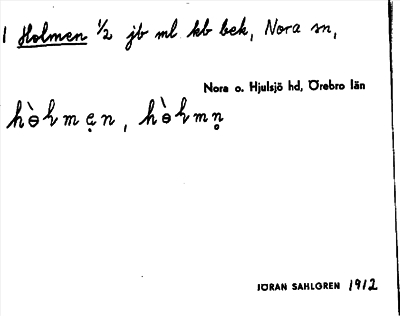 1 Holmen 1/2 jb ml kb bek, Nora sn,
Nora o. Hjulsjö hd, Örebro län
JÖRAN SAHLGREN 1912